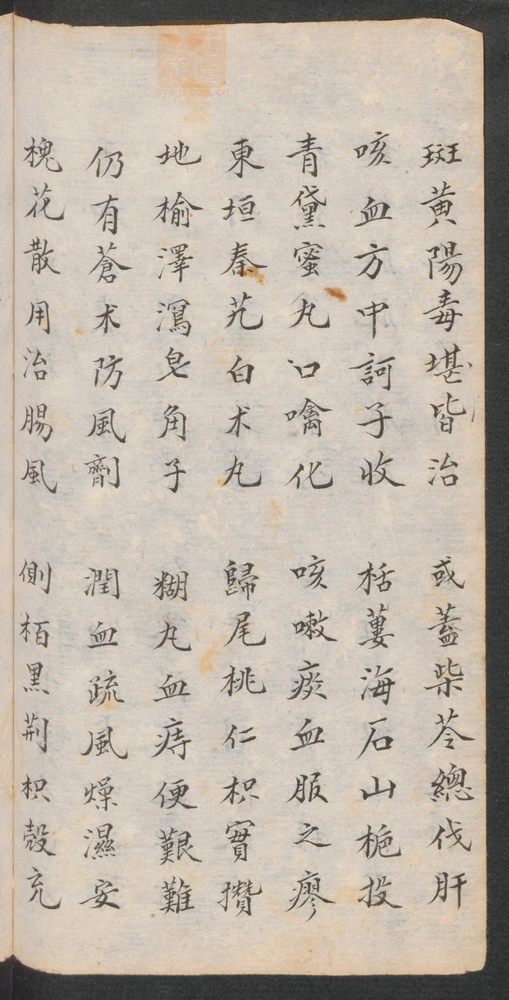 斑黃陽毒堪皆治 或益柴苓總伐肝
咳血方中訶子收 栝蔞海石山梔投
青黛蜜丸口噙化 咳嗽痰血服之瘳
東垣秦艽白朮丸 歸尾桃仁枳實攢
地榆澤瀉皂角子 糊丸血痔便艱難
仍有蒼朮防風劑 潤血疏風燥濕安
槐花散用治腸風 側栢黑荆枳殼充